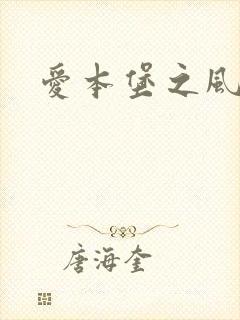 愛本堡之風
唐海奎